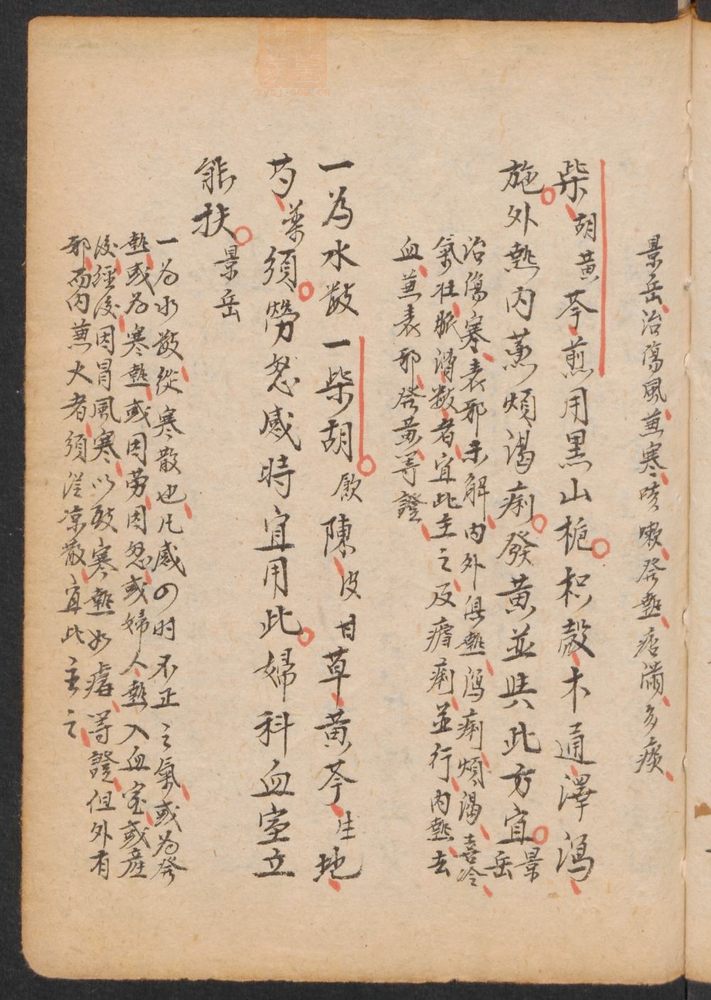 景岳治傷風兼寒咳嗽發熱痞滿多痰
柴胡黃芩煎用黑山梔枳殼木通澤瀉
施外熱内蒸煩渴痢發黃並與此方宜景岳
治傷寒表邪未解内外俱熱瀉痢煩渴喜冷
氣壯脈滑數者宜此主之及瘧痢並行内熱去
血兼表邪發黃等證
一為水數一柴胡飲陳皮甘草黃芩生地
芍藥須勞怒感時宜用此婦科血室立
能扶景岳
一為水數從寒散也凡感四時不正之氣或為發
熱或為寒熱或因勞因怒或婦人熱入血室或產
後經後因冒風寒以致寒熱如瘧等證但外有
邪而内兼火者須從凉散宜此主之